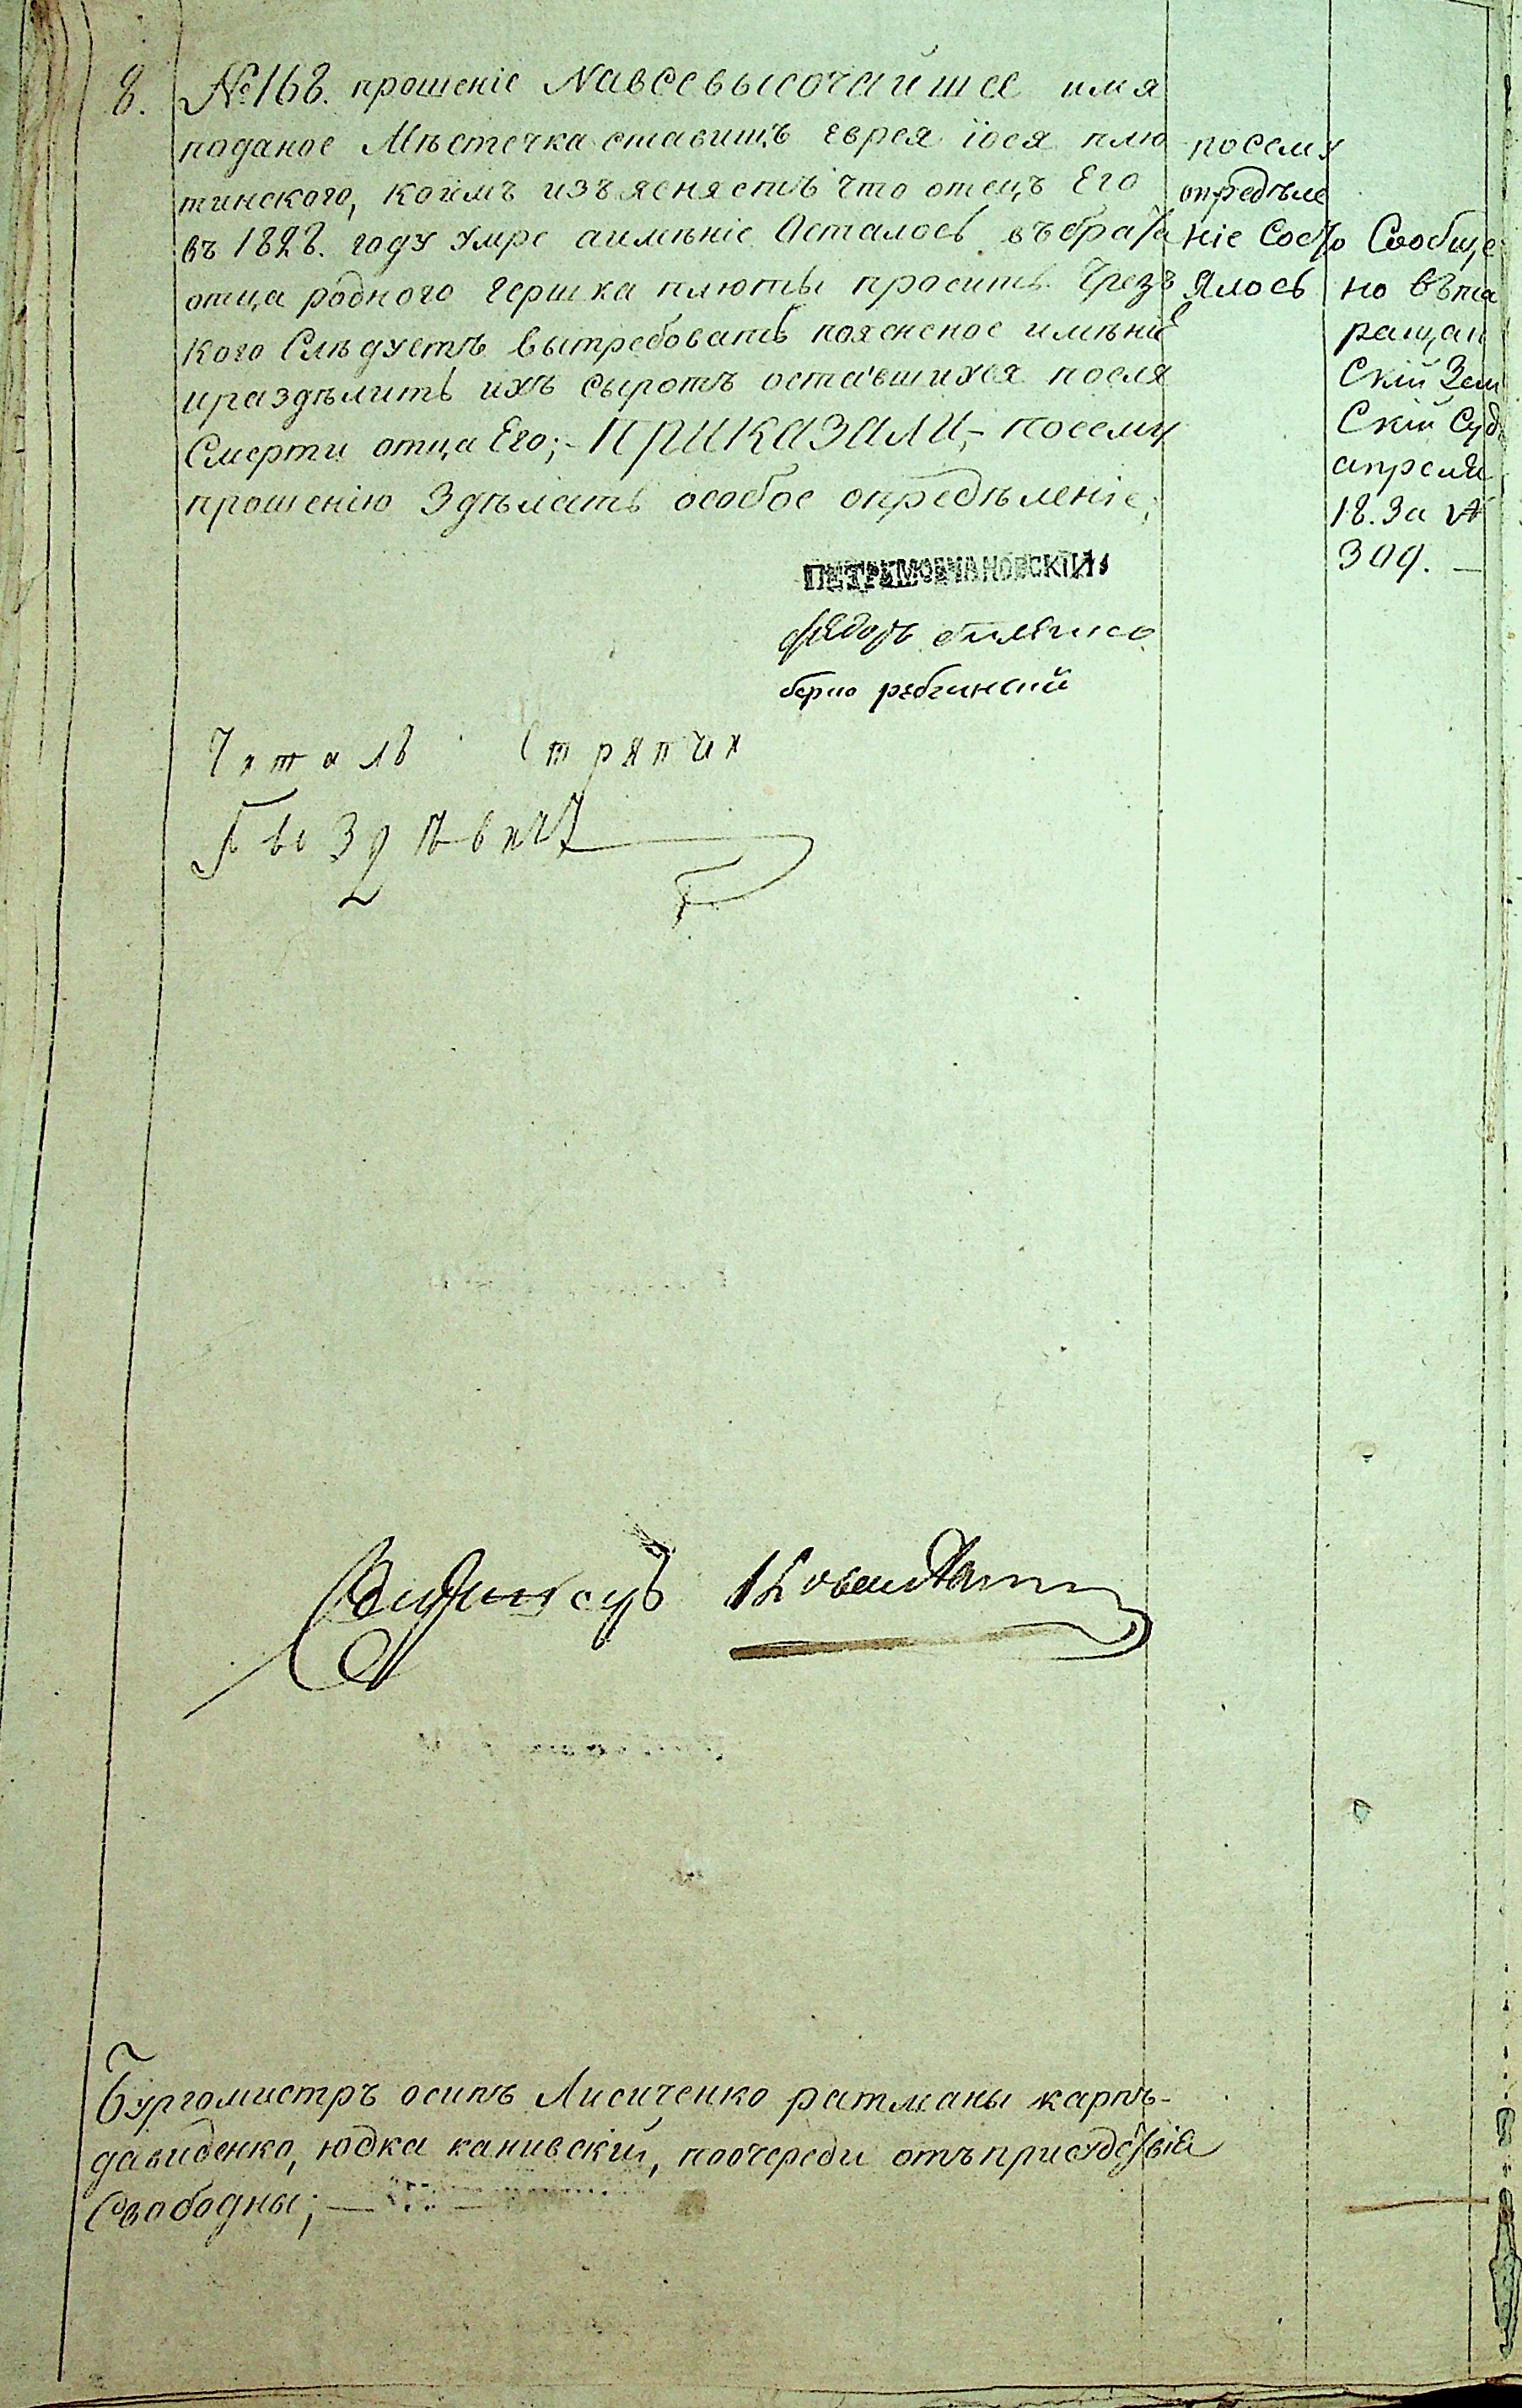 8. №168. прошеніе Навсевысочайшее имя
поданое Мѣстечка ставищъ еврея іося плю
тинского, коимъ изъясняетъ что отецъ Его
въ 1828. году умре аимѣніе Осталось въбрата
отца родного гершка плюты проситъ чрезъ
кого Слѣдуетъ вытребовать поясненое имѣніе
ираздѣлить ихъ сыротъ оставшихся после
Смерти отца Его;- ПРИКАЗАЛИ,- посему
прошенію Здѣлать особое опредѣленіе;
посему
опредѣле
ніе Состо
ялось
Сообще
но въта
ращан
Скій Зем
Скій Суд
апреля
18. За №
309. —
ПЕТРЪ МОВЧАНОВСКІЙ
Федоръ
берко
Читалъ Стряпчи
Бургомистръ осипъ Лисиченко ратманы карпъ-
давиденко, юдка канивскій, поочереди отъприсудствія
Свободны; —